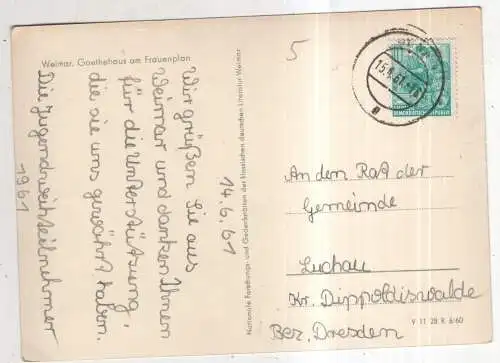 Weimar, Goethehaus am Frauenplan
14.6.61
Wir grüßen Sie aus
Weimar und danken Ihnen
für die Unterstützung,
die sie uns gewährt haben.
Die Jugendweiheteilnehmer
1961
Nationale Forschungs- und Gedenkstätten der klassischen deutschen Literatur Weimar
5
15.6.61
DEUTSCHE
DEMOKRATISCHE REPUBLIK
An den Rat der
Gemeinde
Luchau
Kr. Dippoldiswalde
Bez. Dresden
V 11 28 R 6/60